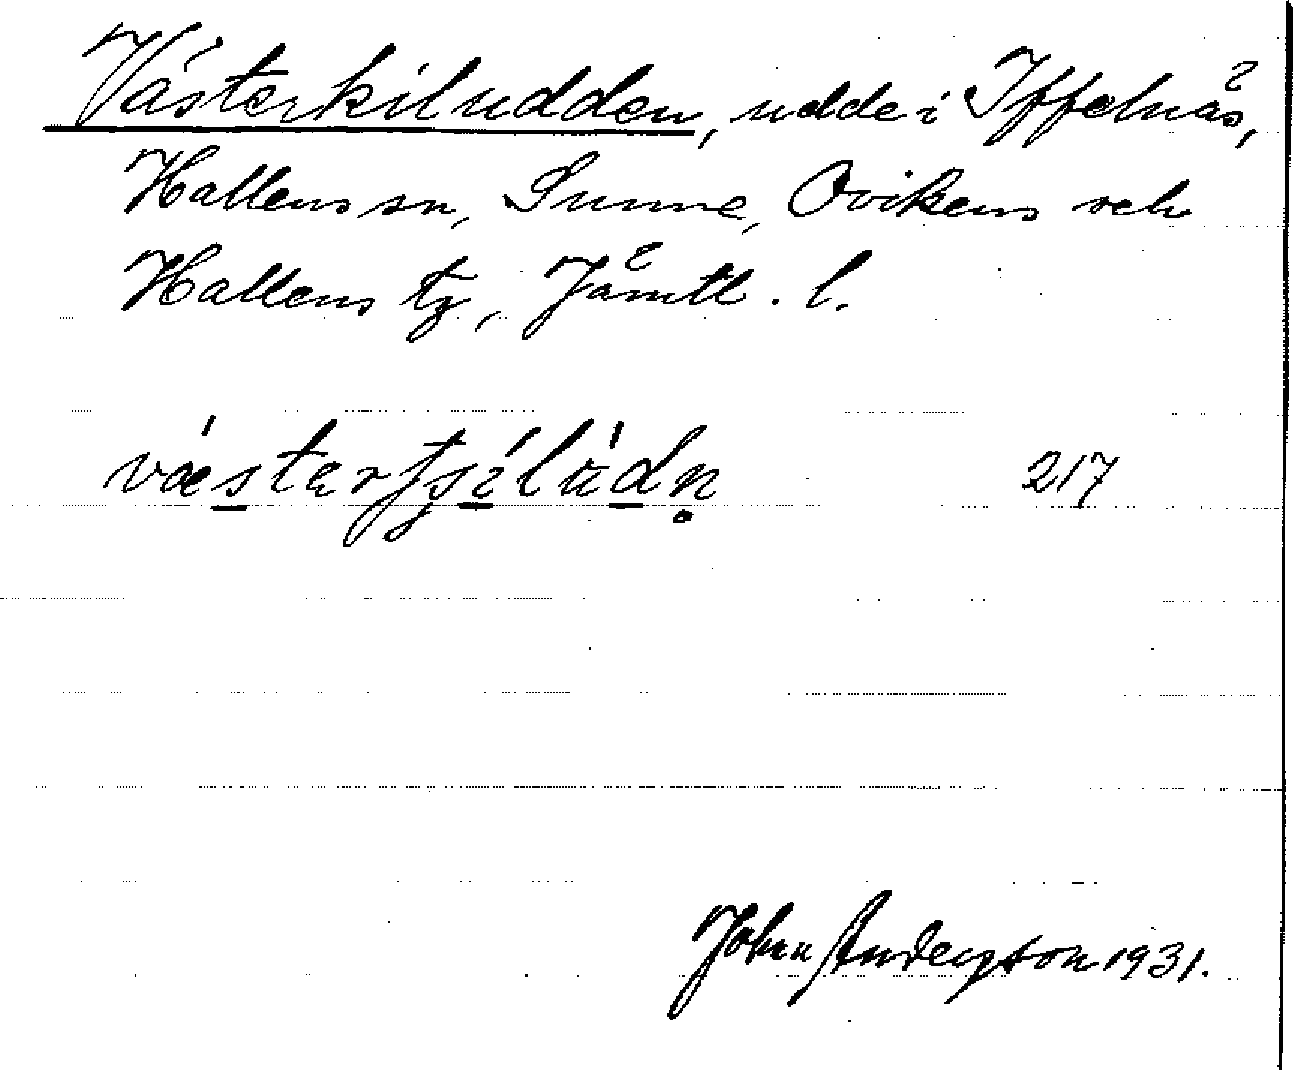 Västerkiludden, udde i Iffelnäs,
Hallens sn, Sunne, Ovikens och
Hallens tg, Jämtl. l.
217
John Anderson 1931.